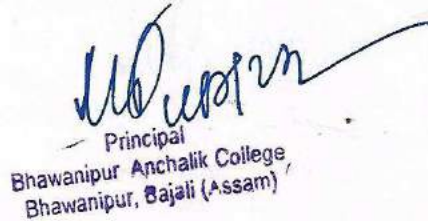 Principal
Bhawanipur Anchalik College
Bhawanipur, Bajali (Assam)